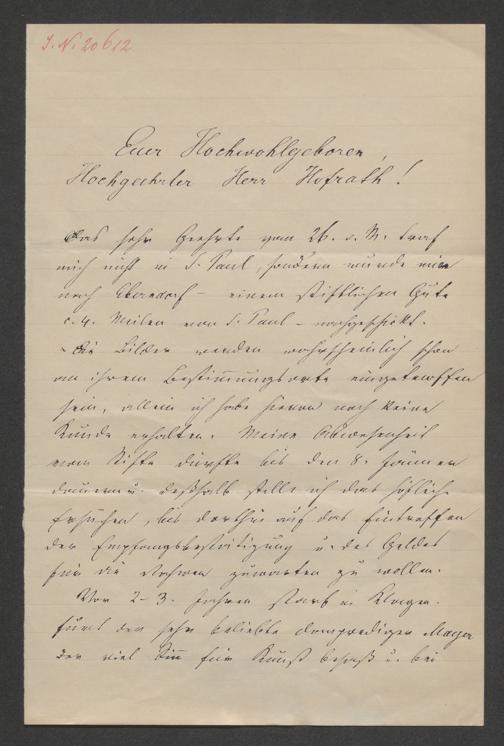 J. N. 20612
Euer Hochwohlgeboren,
Hochgeehrter Herr Hofrath!
Das sehr Geehrte vom 26. v. M. traf
mich nicht in S. Paul, sondern wurde mir
nach Eberndorf – einem stiftlichen Gute
c. 4. Meilen von S. Paul – nachgeschickt.
Die Bilder werden wahrscheinlich schon
an ihrem Bestimmungsorte eingetroffen
sein, allein ich habe hievon noch keine
Kunde erhalten. Meine Abwesenheit
vom Stifte dürfte bis den 8. Jänner
dauern u. deßhalb stelle ich das höfliche
Ersuchen, bis dorthin auf das Eintreffen
der Empfangsbestätigung u. des Geldes
für die Rahmen zuwarten zu wollen.
Vor 2-3. Jahren starb in Klagen-
furt der sehr beliebte Domprediger Mayer
der viel Sinn für Kunst besaß u. bei